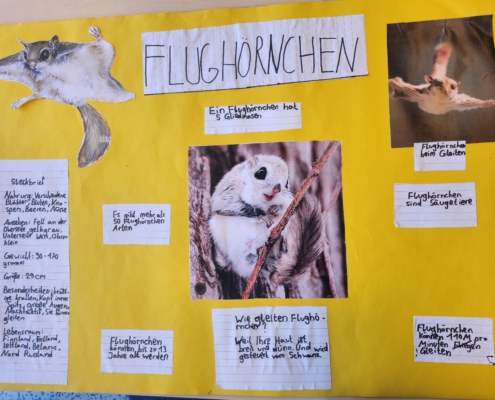 FLUGHÖRNCHEN
Ein Flughörnchen hat
5 Gliedmasen
Flughörnchen
beim Gleiten
Steckbrief
Nahrung: Verschiedene
Blätter, Blüten, Kno-
spen, Beeren, Nüsse
Aussehen: Fell an der
Oberseite gelbgrau,
Unterseite weiß, Ohren
klein
Gewicht: 90-170
gramm
Größe: 29cm
Besonderheiten: kräfti-
ge krallen, Kopf immer
Spitz, große Augen,
Nachtaktiv, Sie können
gleiten
Lebensraum:
Finnland, Estland,
Lettland, Belarus,
Nord Russland
Es gibt mehr als
50 Flughörnchen
Arten
Flughörnchen
sind Säugetiere
Flughörnchen
könnten bis zu 13
Jahre alt werden
Wie gleiten Flughö-
rnchen?
Weil Ihre Haut ist
breit und dünn. Und wird
gesteuert vom Schwanz.
Flughörnchen
können 110M pro
Minuten Fliegen
Gleiten